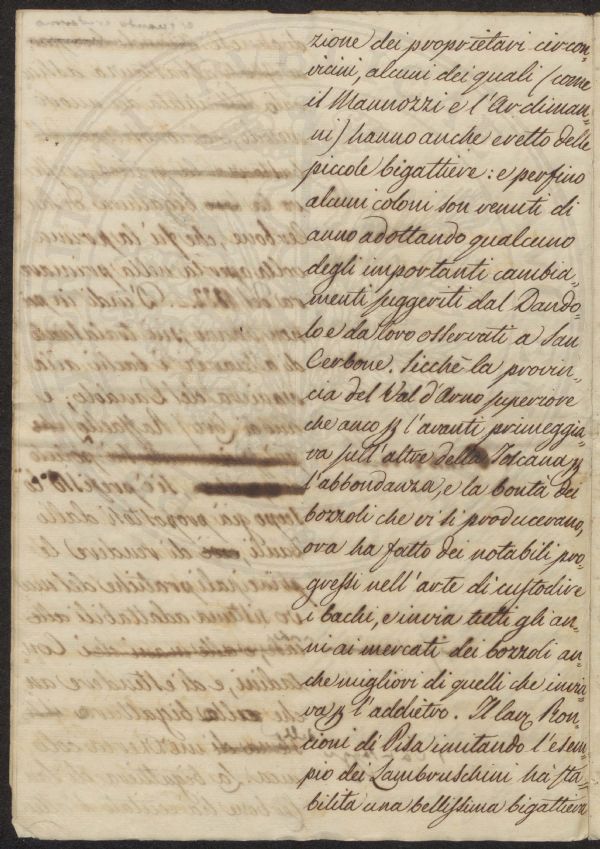 zione dei proprietari circon=
vicini, alcuni dei quali (come
il Mannozzi e l'Ardiman=
ni) hanno anche eretto delle
piccole bigattiere: e perfino
alcuni coloni son venuti di
anno adottando qualcuno
degli importanti cambia=
menti suggeriti dal Dando=
lo e da loro osservati a San
Cerbone. Sicchè la provin=
cia del Val d'Arno superiore
che anco p l'avanti primeggia=
va sull'altre della Toscana p
l'abbondanza, e la bontà dei
bozzoli che vi si producevano,
ora ha fatto dei notabili pro=
gressi nell'arte di custodire
i bachi, e invia tutti gli an=
ni ai mercati dei bozzoli an=
che migliori di quelli che invia=
va p l'addietro. Il Ron=
cioni di Pisa imitando l'esem=
pio dei Lambruschini ha sta=
bilita una bellissima bigattiera